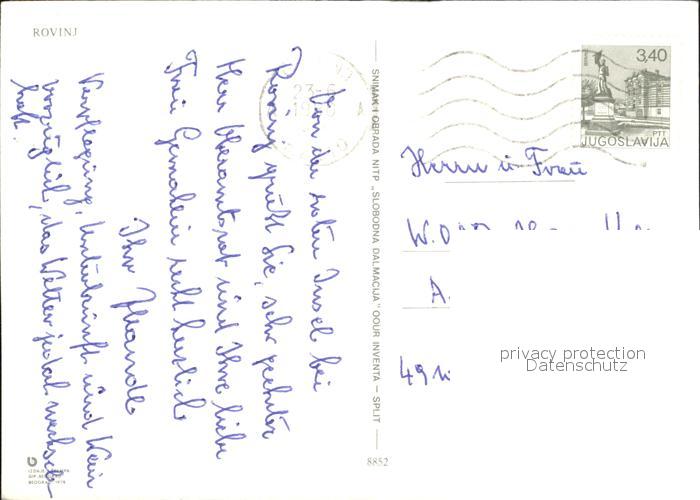 ROVINJ
Von der roten Insel bei
Rovinj grüßt Sie, sehr geehrter
Herr Oberamtsrat und Ihre liebe
Frau Gemahlin recht herzlich
Ihr
Verpflegung, Unterkunft und Wein
vorzüglich, das Wetter jedoch wechsel
haft.
SNIMAK I OBRADA NITP „SLOBODNA DALMACIJA" OOUR INVENTA – SPLIT
3,40
PTT
JUGOSLAVIJA
Herrn u. Frau
W.
A.
49
privacy protection
Datenschutz
8852
BEOGRAD